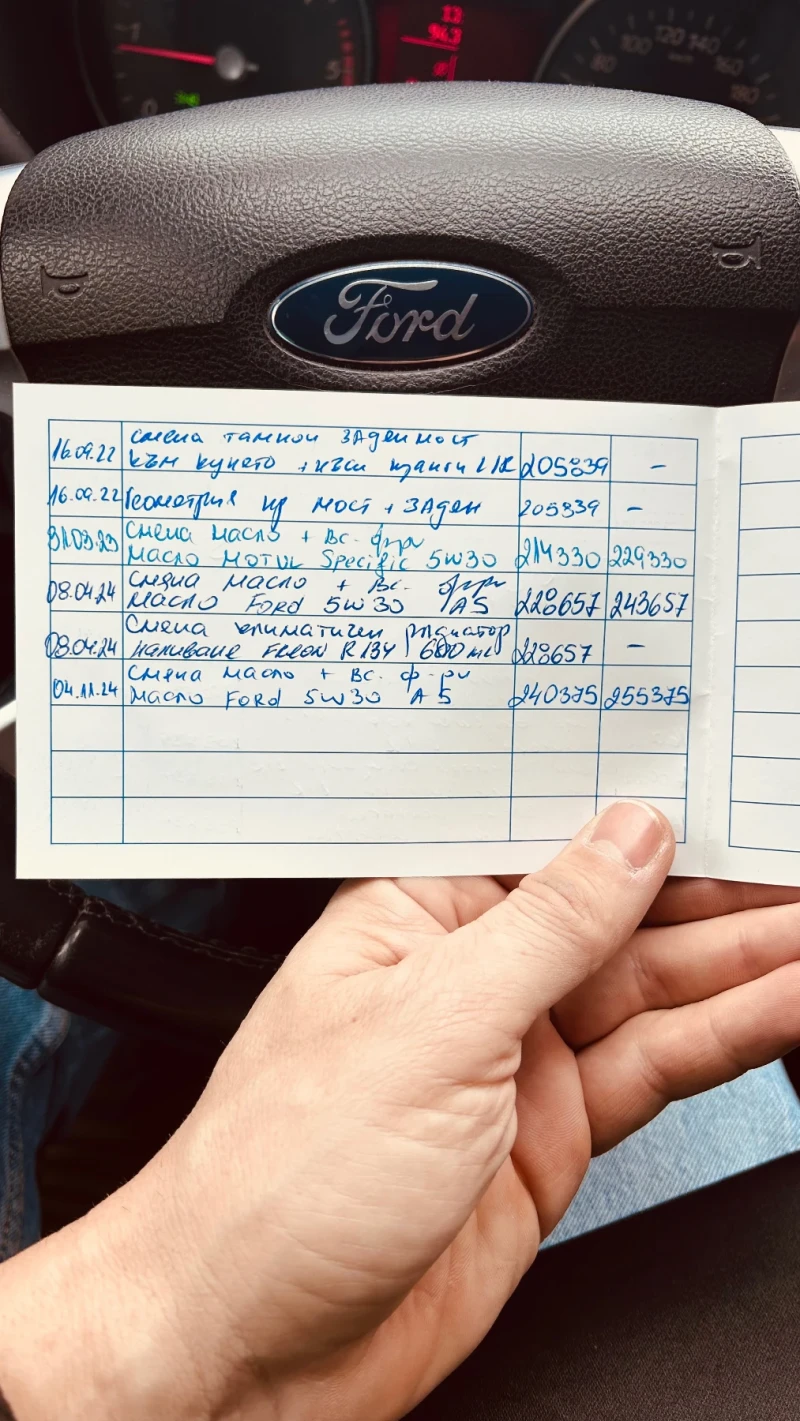 Ford
16.09.22 смена тампон заден мост
към купето + къси щанги L/R 205839 -
16.09.22 Геометрия пр мост + заден 205839 -
31.03.23 Смена масло + Вс. ф-ри
Масло MOTUL Specific 5w30 214330 229330
08.04.24 Смяна масло + Вс. ф-ри
масло Ford 5w30 A5 228657 243657
08.04.24 Смена климатичен радиатор
наливане Freon R134 600 мл 228657 -
04.11.24 Смяна масло + Вс. ф-ри
Масло Ford 5w30 A5 240375 255375